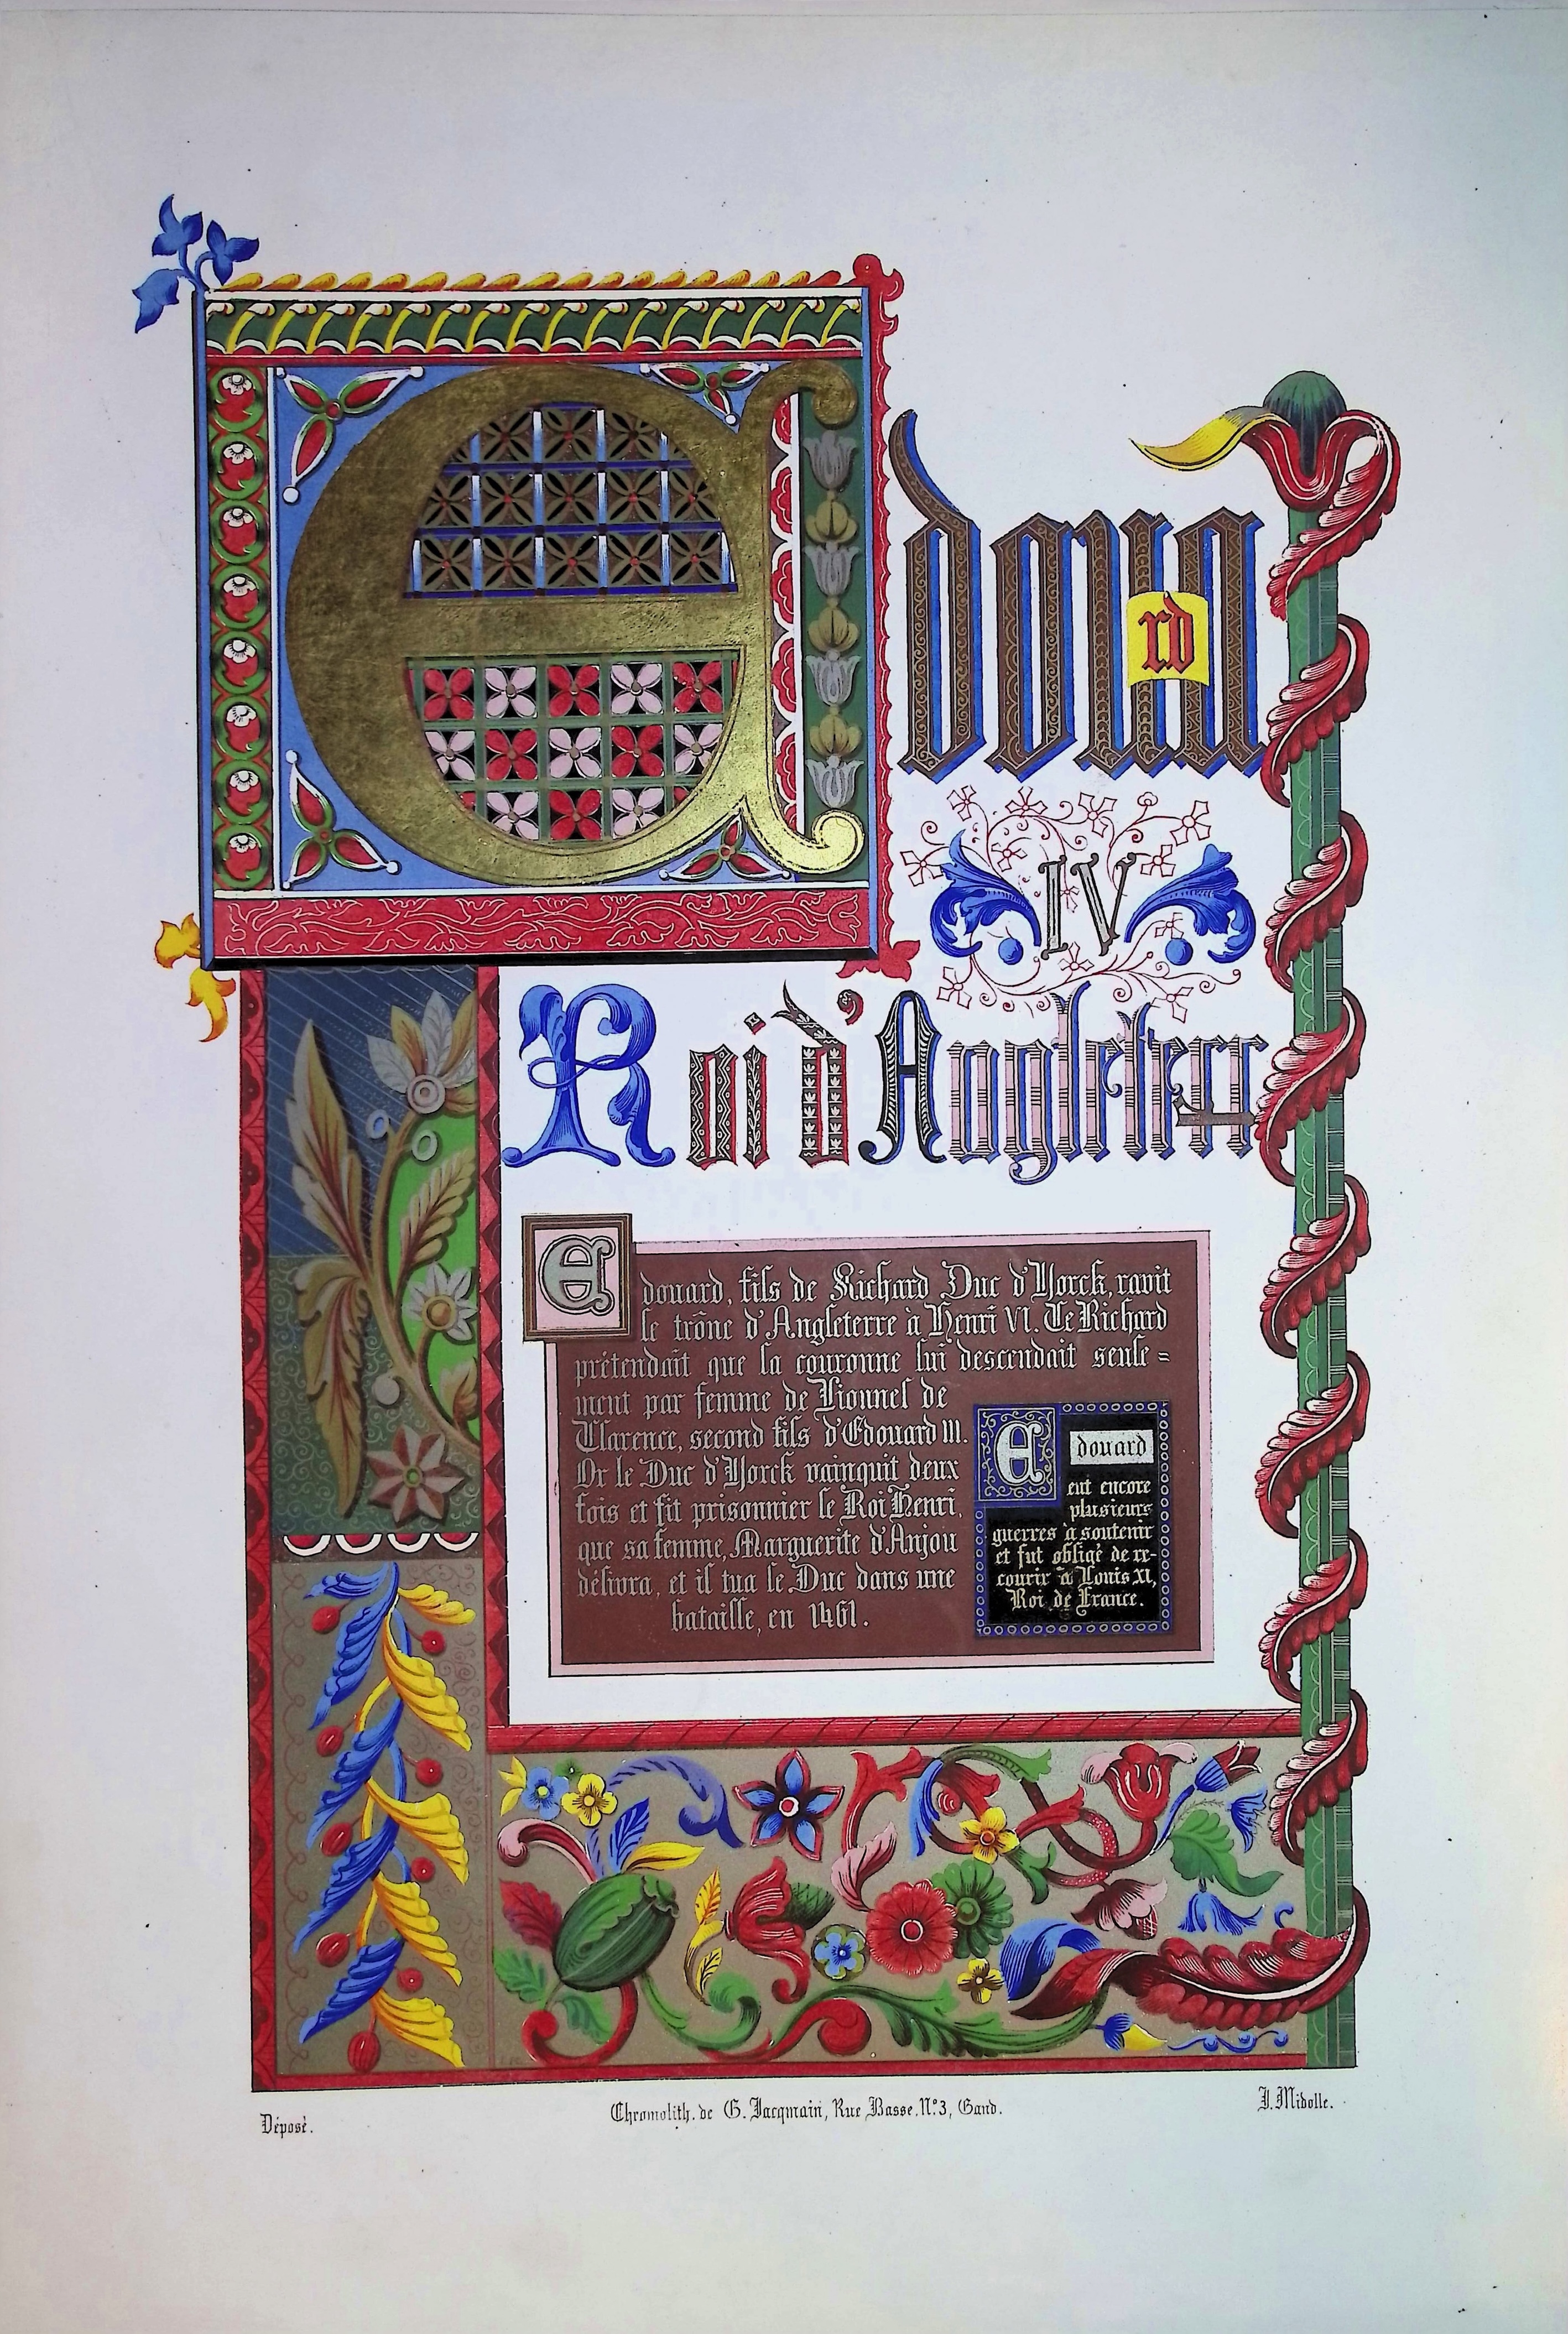 Edoua
rd
IV
Roi d'Angleterr
Edouard, fils de Richard Duc d'Yorck, ravit
le trône d'Angleterre à Henri VI. Ce Richard
prétendait que la couronne lui descendait seule=
ment par femme de Lionnel de
Clarence, second fils d'Edouard III.
Or le Duc d'Yorck vainquit deux
fois et fit prisonnier le Roi Henri,
que sa femme, Marguerite d'Anjou
délivra, et il tua le Duc dans une
bataille, en 1461.
Edouard
eut encore
plusieurs
guerres à soutenir
et fut obligé de re-
courir à Louis XI,
Roi de France.
Déposé.
Chromolith. de G. Jacqmain, Rue Basse. N.º 3, Gand.
J. Midolle.